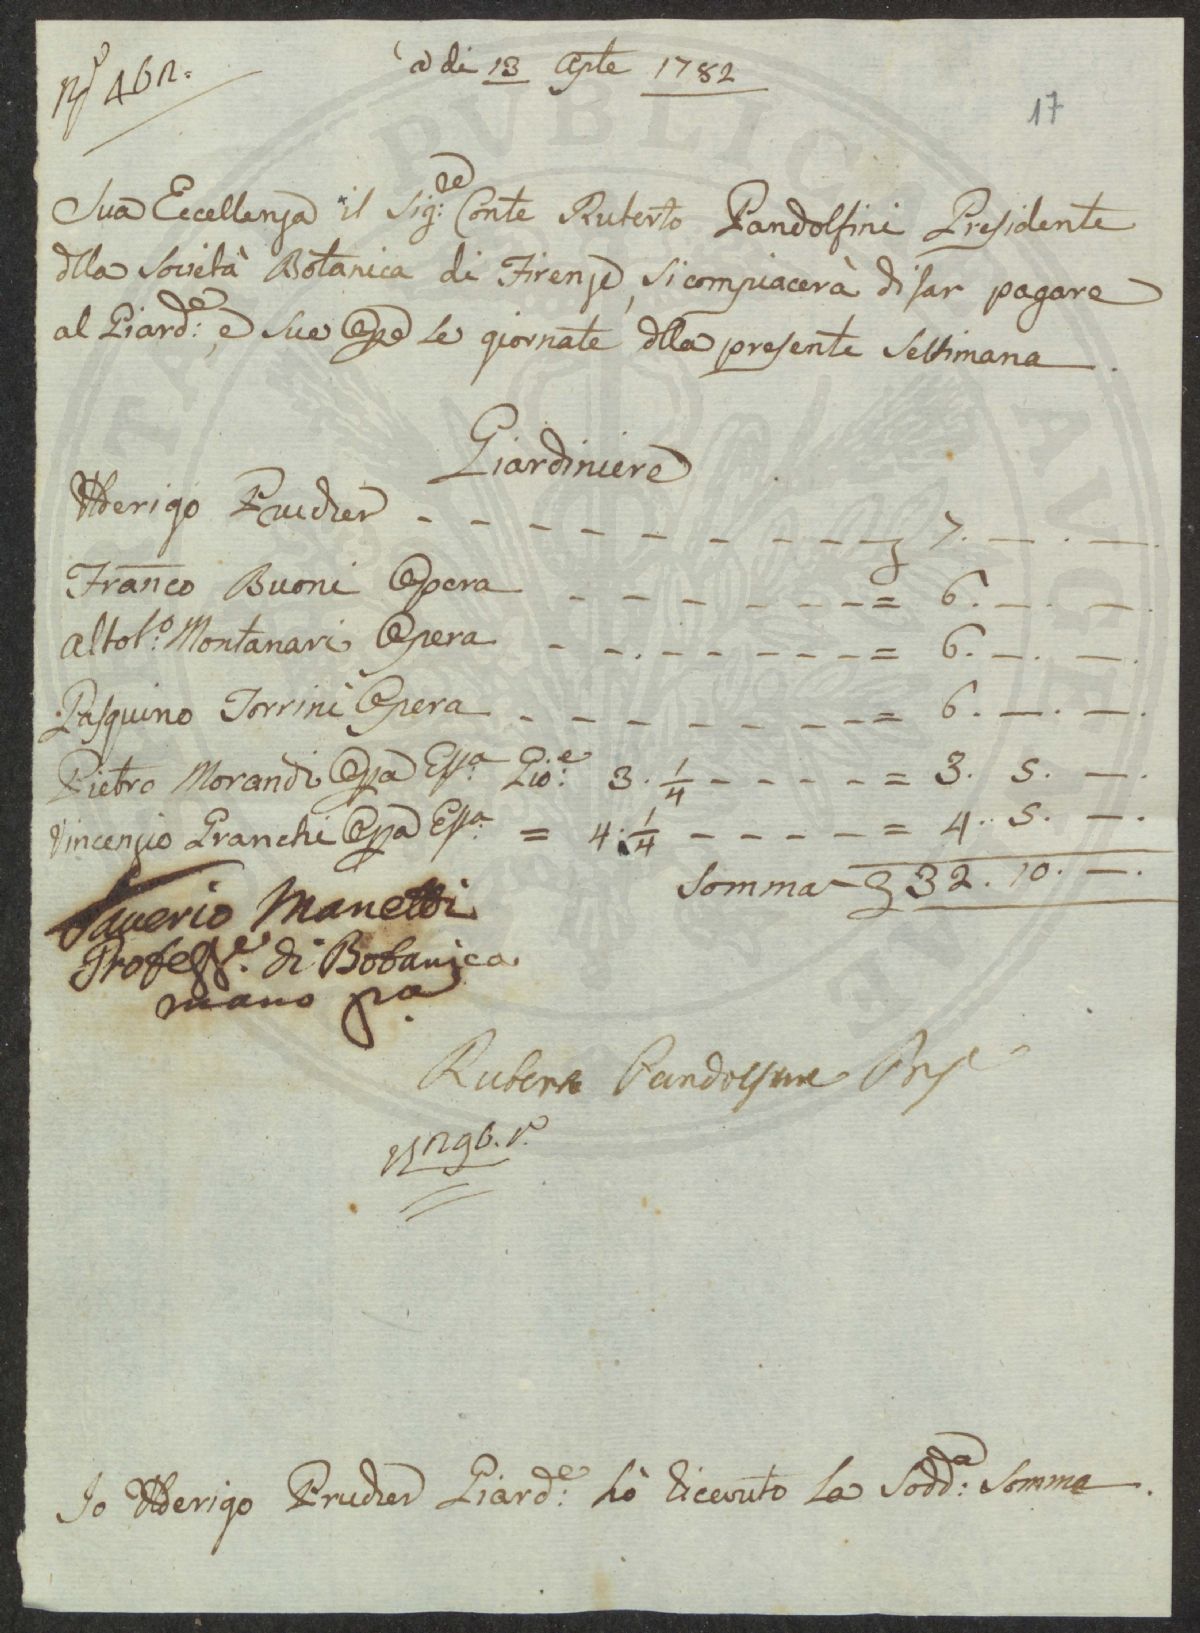 N.º 462.
a di 13 Aple 1782
17
Sua Eccellenza il Sig:re Conte Ruberto Pandolfini Presidente
dlla Società Botanica di Firenze, si compiacerà di far pagare
al Giard:e, e sue Ope le giornate dlla presente Settimana.
Giardiniere
Uberigo Prucher - - - - - - - - - 7. — . —
Franco Buoni Opera - - - - - - - = 6. — . —
Altol:o Montanari Opera - - . - - - - - = 6. — . —
Pasquino Torrini Opera - - - - - - - = 6. — . —
Pietro Morandi Opa Esa Gio:e 3. 1/4 - - - - - = 3. 5. —.
Vincenzio Granchi Opa Esa = 4. 1/4 - - - - - = 4. 5. —.
Somma 32. 10. —.
Saverio Manetti
Professe. di Botanica
mano pa
Ruberto Pandolfini Pres
Io Uberigo Prucher Giard:e hò ricevuto la Sodd:a Somma.